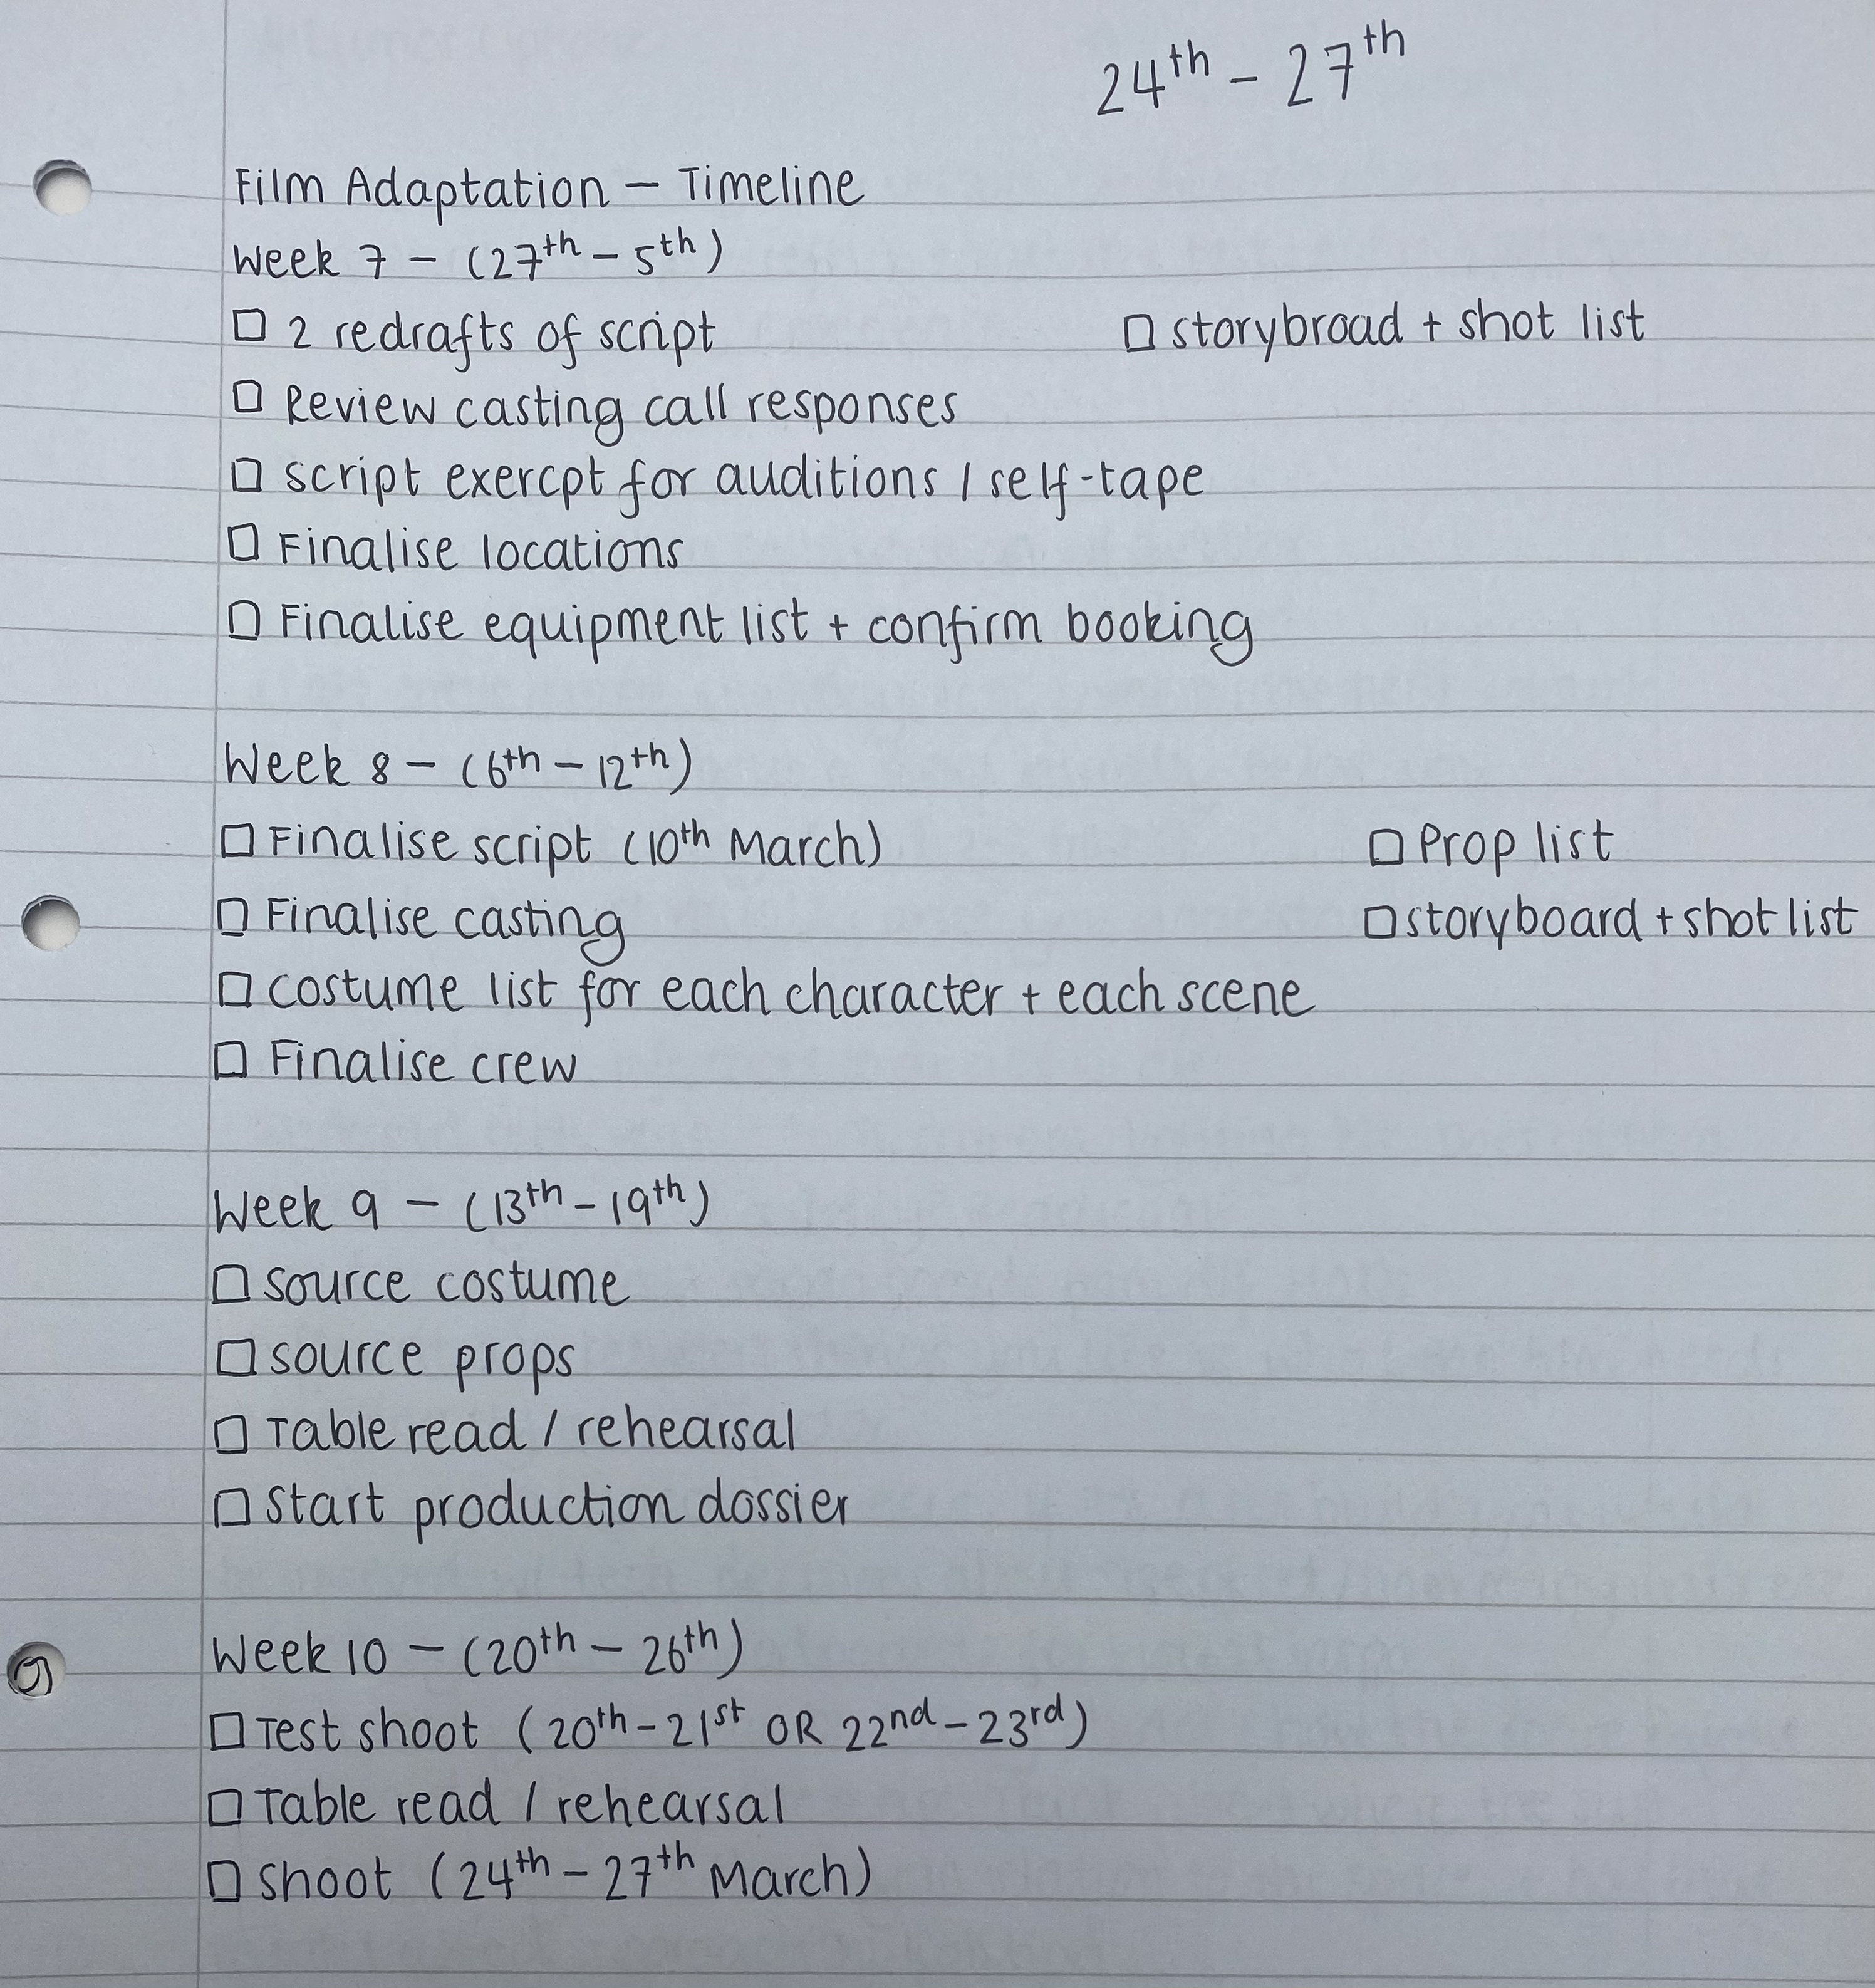 24th - 27th
Film Adaptation - Timeline
Week 7 - (27th - 5th)
□ 2 redrafts of script □ storybroad + shot list
□ Review casting call responses
□ script exercpt for auditions / self-tape
□ Finalise locations
□ Finalise equipment list + confirm booking
Week 8 - (6th - 12th)
□ Finalise script (10th March) □ Prop list
□ Finalise casting □ storyboard + shot list
□ costume list for each character + each scene
□ Finalise crew
Week 9 - (13th - 19th)
□ source costume
□ source props
□ Table read / rehearsal
□ Start production dossier
Week 10 - (20th - 26th)
□ Test shoot (20th - 21st OR 22nd - 23rd)
□ Table read / rehearsal
□ shoot (24th - 27th March)